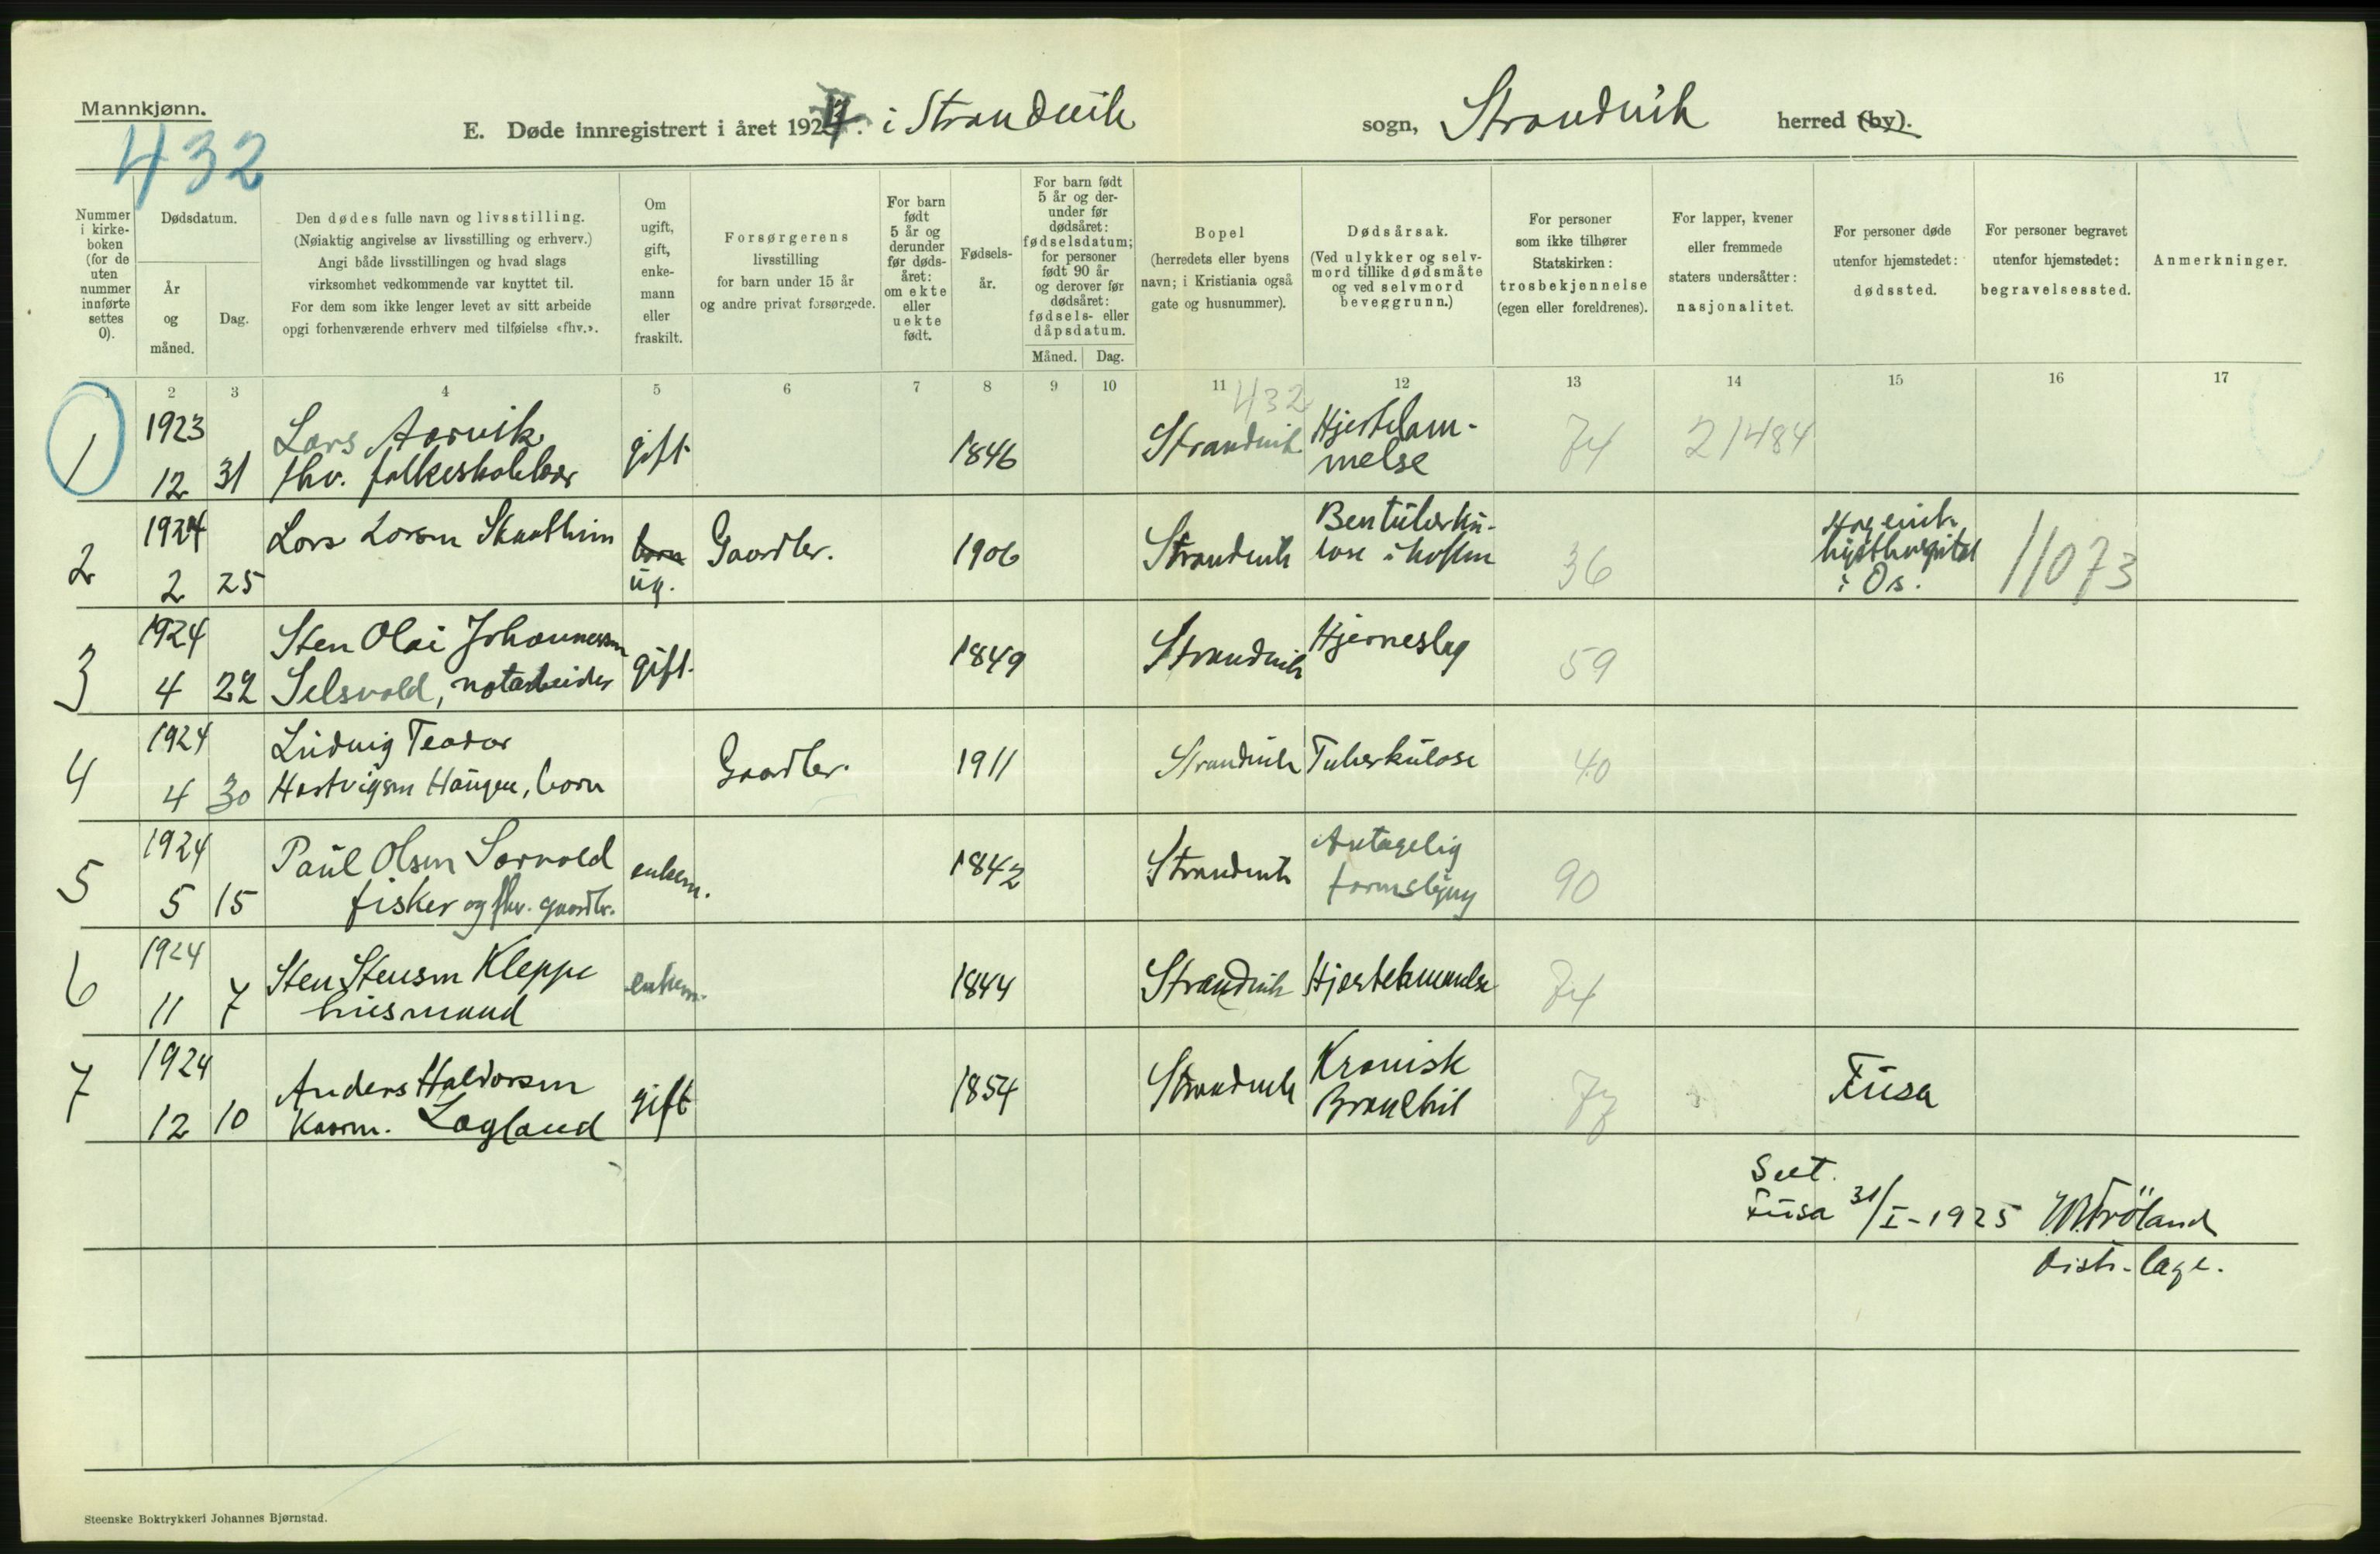 Mannkjønn.
432
E. Døde innregistrert i året 1924. i Strandvik sogn, Strandvik herred (by).
Nummer
i kirke-
boken
(for de
uten
nummer
innførte
settes
0).
Dødsdatum.
År
og
måned.
Dag.
Den dødes fulle navn og livsstilling.
(Nøiaktig angivelse av livsstilling og erhverv.)
Angi både livsstillingen og hvad slags
virksomhet vedkommende var knyttet til.
For dem som ikke lenger levet av sitt arbeide
opgi forhenværende erhverv med tilføielse «fhv.».
Om
ugift,
gift,
enke-
mann
eller
fraskilt.
Forsørgerens
livsstilling
for barn under 15 år
og andre privat forsørgede.
For barn
født
5 år og
derunder
før døds-
året:
om ekte
eller
uekte
født.
Fødsels-
år.
For barn født
5 år og der-
under før
dødsåret:
fødselsdatum;
for personer
født 90 år
og derover før
dødsåret:
fødsels- eller
dåpsdatum.
Måned. Dag.
Bopel
(herredets eller byens
navn; i Kristiania også
gate og husnummer).
Dødsårsak.
(Ved ulykker og selv-
mord tillike dødsmåte
og ved selvmord
beveggrunn.)
For personer
som ikke tilhører
Statskirken:
trosbekjennelse
(egen eller foreldrenes).
For lapper, kvener
eller fremmede
staters undersåtter:
nasjonalitet.
For personer døde
utenfor hjemstedet:
dødssted.
For personer begravet
utenfor hjemstedet:
begravelsessted.
Anmerkninger.
1 2 3 4 5 6 7 8 9 10 11 12 13 14 15 16 17
432
1 1923 Lars Aarvik gift 1846 Strandvik Hjertelam- 74 21484
12 31 fhv. folkeskolelær melse
2 1924 Lars Larsen Skaathun barn Gaardbr. 1906 Strandvik Bentuberku- 36 Hagevik 11073
2 25 ug. lose i hoften kysthospital
i Os.
3 1924 Sten Olai Johannessen gift 1849 Strandvik Hjerneslag 59
4 22 Selsvold, notarbeider
4 1924 Ludvig Teodor Gaardbr. 1911 Strandvik Tuberkulose 40
4 30 Hartvigsen Haugen, barn
5 1924 Paul Olsen Sørvold enkem. 1842 Strandvik Antagelig 90
5 15 fisker og fhv. gaardbr.
6 1924 Sten Stensen Kleppe enkem. 1844 Strandvik Hjertelammelse 74
11 7 husmand
7 1924 Anders Haldorsen gift 1854 Strandvik Kronisk 77 Fusa
12 10 Kaarm. Lagland Bronchit
Seet.
Fusa 31/I-1925
Fröland
distr.læge.
Steenske Boktrykkeri Johannes Bjørnstad.